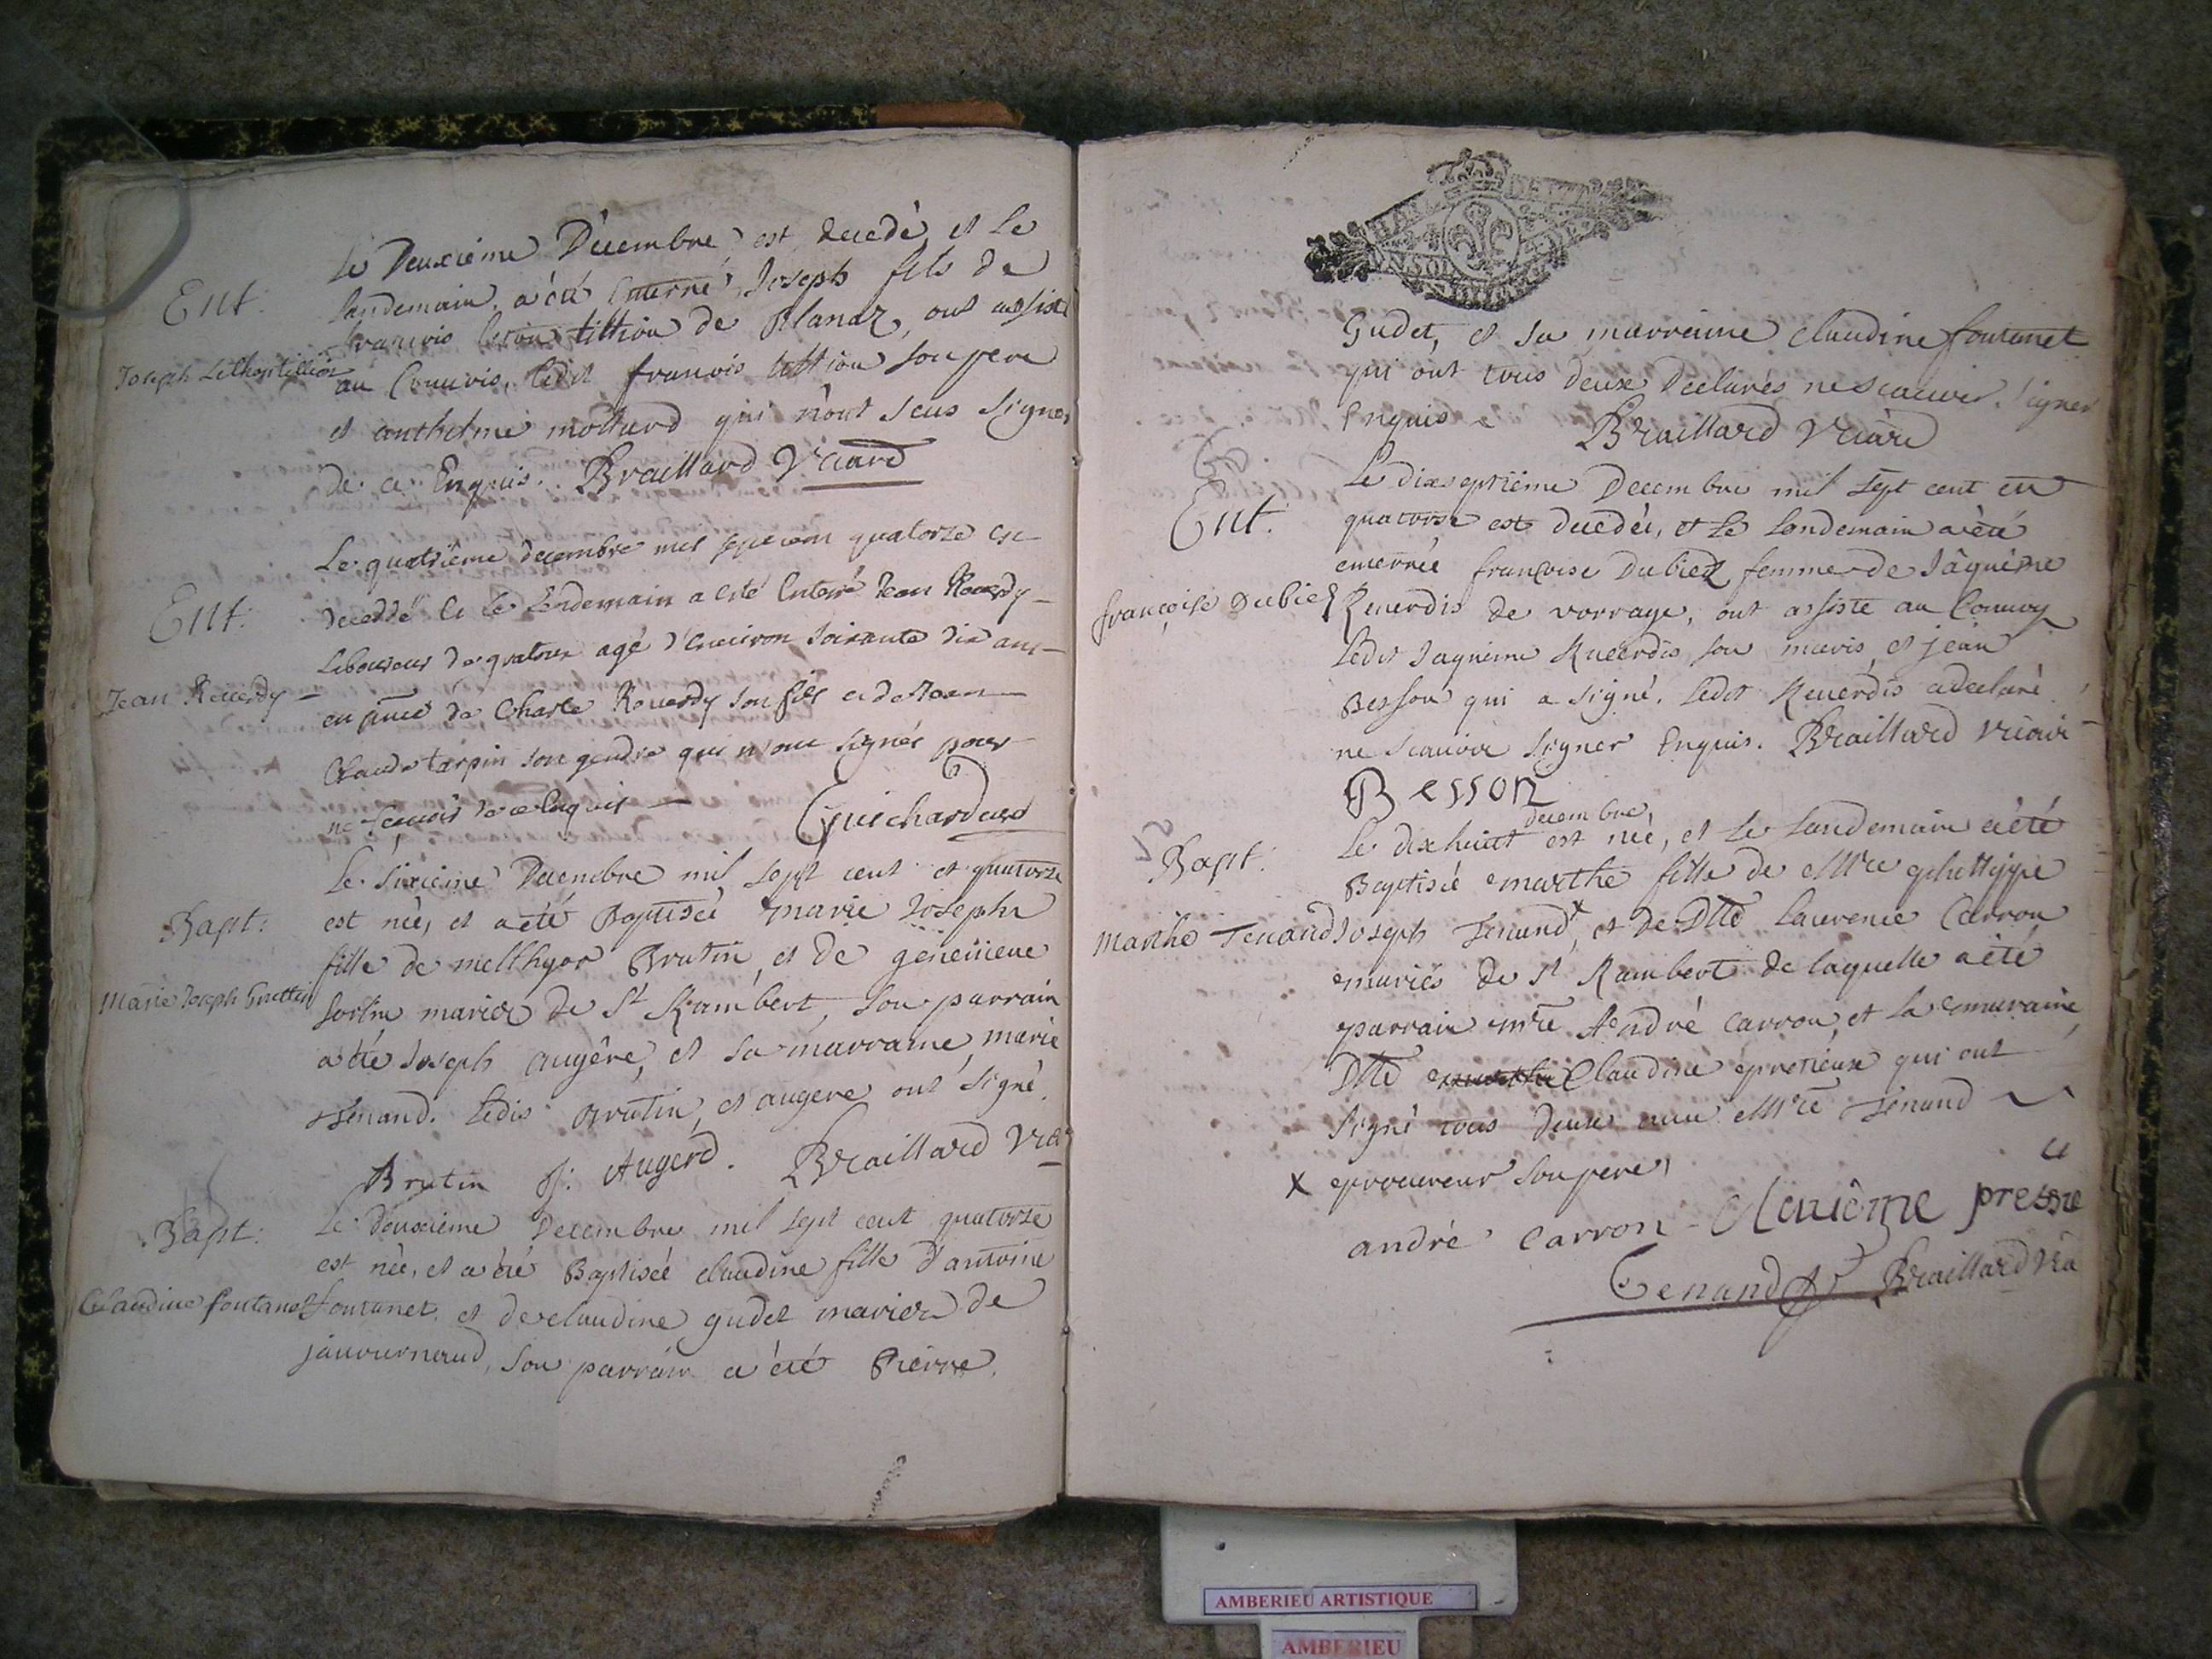 Ent:
Joseph Lethoptillion
Le Deuxième Décembre est decedé et le
landemain a été enterré Joseph fils de
francois tithion de Planaz, ont assisté
au Convois, ledit francois tithion son pere
et anthelme mollard qui n'ont sceus signer
de ce Enquis. Braillard Vicaire
Ent:
Jean Reverdy
Le quatrième decembre mil sept cent quatorze est
deceddé et le Lendemain a esté Enterré Jean Reverdy
laboureur agé d'Environ soixante dix ans
de Charle Reverdy son fils et de
Claude tarpin son gendre qui n'ont signés pour
ne scavoir de ce Enquis Guichard curé
Bapt:
Marie Joseph Bruttin
Le Sixième Decembre mil sept cent et quatorze
est née, et a été Baptisée marie Josephe
fille de melchyor Brutin, et de genevieve
mariez de St Rambert, son parrain
a été Joseph augère, et sa marraine marie
Tenand. Ledis Brutin, et augere ont signé.
Brutin J: Augerd. Braillard Vic
Bapt:
Claudine fontanet
Le deuxième Decembre mil sept cent quatorze
est née, et a été Baptisée claudine fille d'antoine
fontanet et de claudine gudet mariez de
son parrain a été Pierre
Gudet, et sa marreine claudine fontanet
qui ont tous deux declarés ne scauoir signer
Enquis. Braillard Vicaire
Ent:
françoise Dubiez
Le dixseptième Decembre mil sept cent et
quatorse est decedée, et le landemain a été
enterrée françoise Dubiez femme de Jâquême
Reuerdis de vorrage, ont assisté au Convoy
ledit Jaquême Reuerdis son maris, et jean
Besson qui a signé. Ledit Reuerdis a declaré
ne scauoir signer Enquis. Braillard vicair
Besson
Bapt:
Marthe Tenand
decembre
Le dixhuict est née, et le landemain a été
Baptisée marthe fille de Mre phelippe
Joseph Tenand x, et de Dlle Laurence Carron
mariés de St Rambert de laquelle a été
parrain mre André Carron, et la marraine
Dlle Claudine pretieux qui ont
signé tous deux auec Mre Tenand
x procureur son pere,
andré Carron
Tenand Braillard Vic
AMBERIEU ARTISTIQUE
AMBERIEU